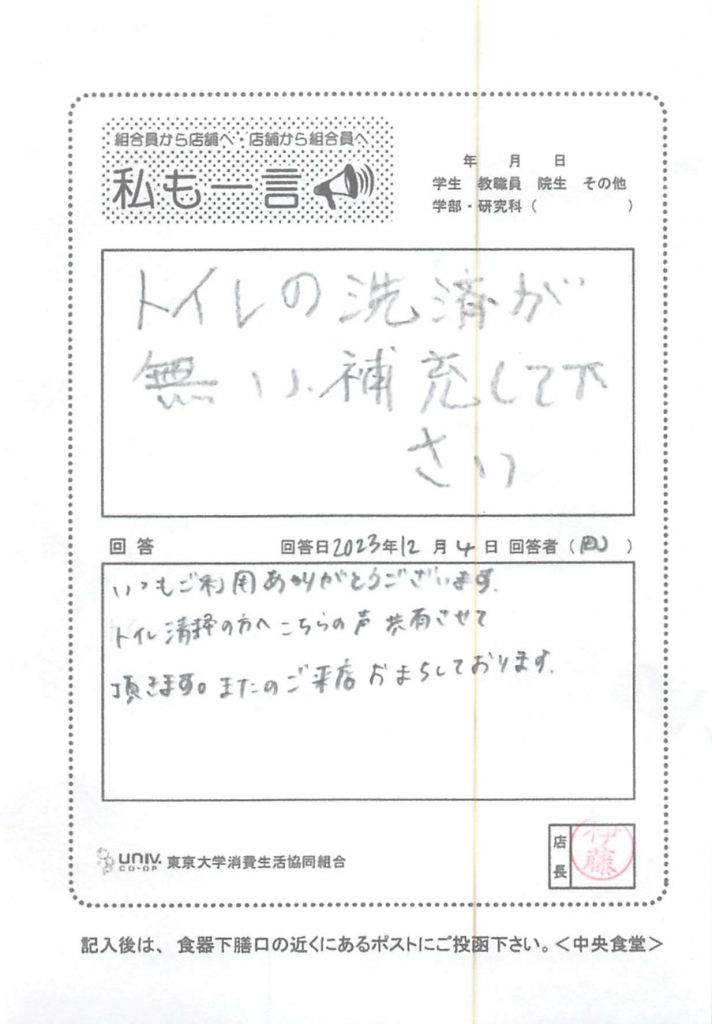 組合員から店舗へ・店舗から組合員へ
私も一言
年 月 日
学生 教職員 院生 その他
学部・研究科（ ）
トイレの洗済が
無い、補充して下
さい
回答 回答日2023年12月4日 回答者（ ）
いつもご利用ありがとうございます.
トイレ清掃の方へこちらの声共有させて
頂きます。またのご来店おまちしております.
店長
伊藤
UNIV. CO-OP 東京大学消費生活協同組合
記入後は、食器下膳口の近くにあるポストにご投函下さい。＜中央食堂＞